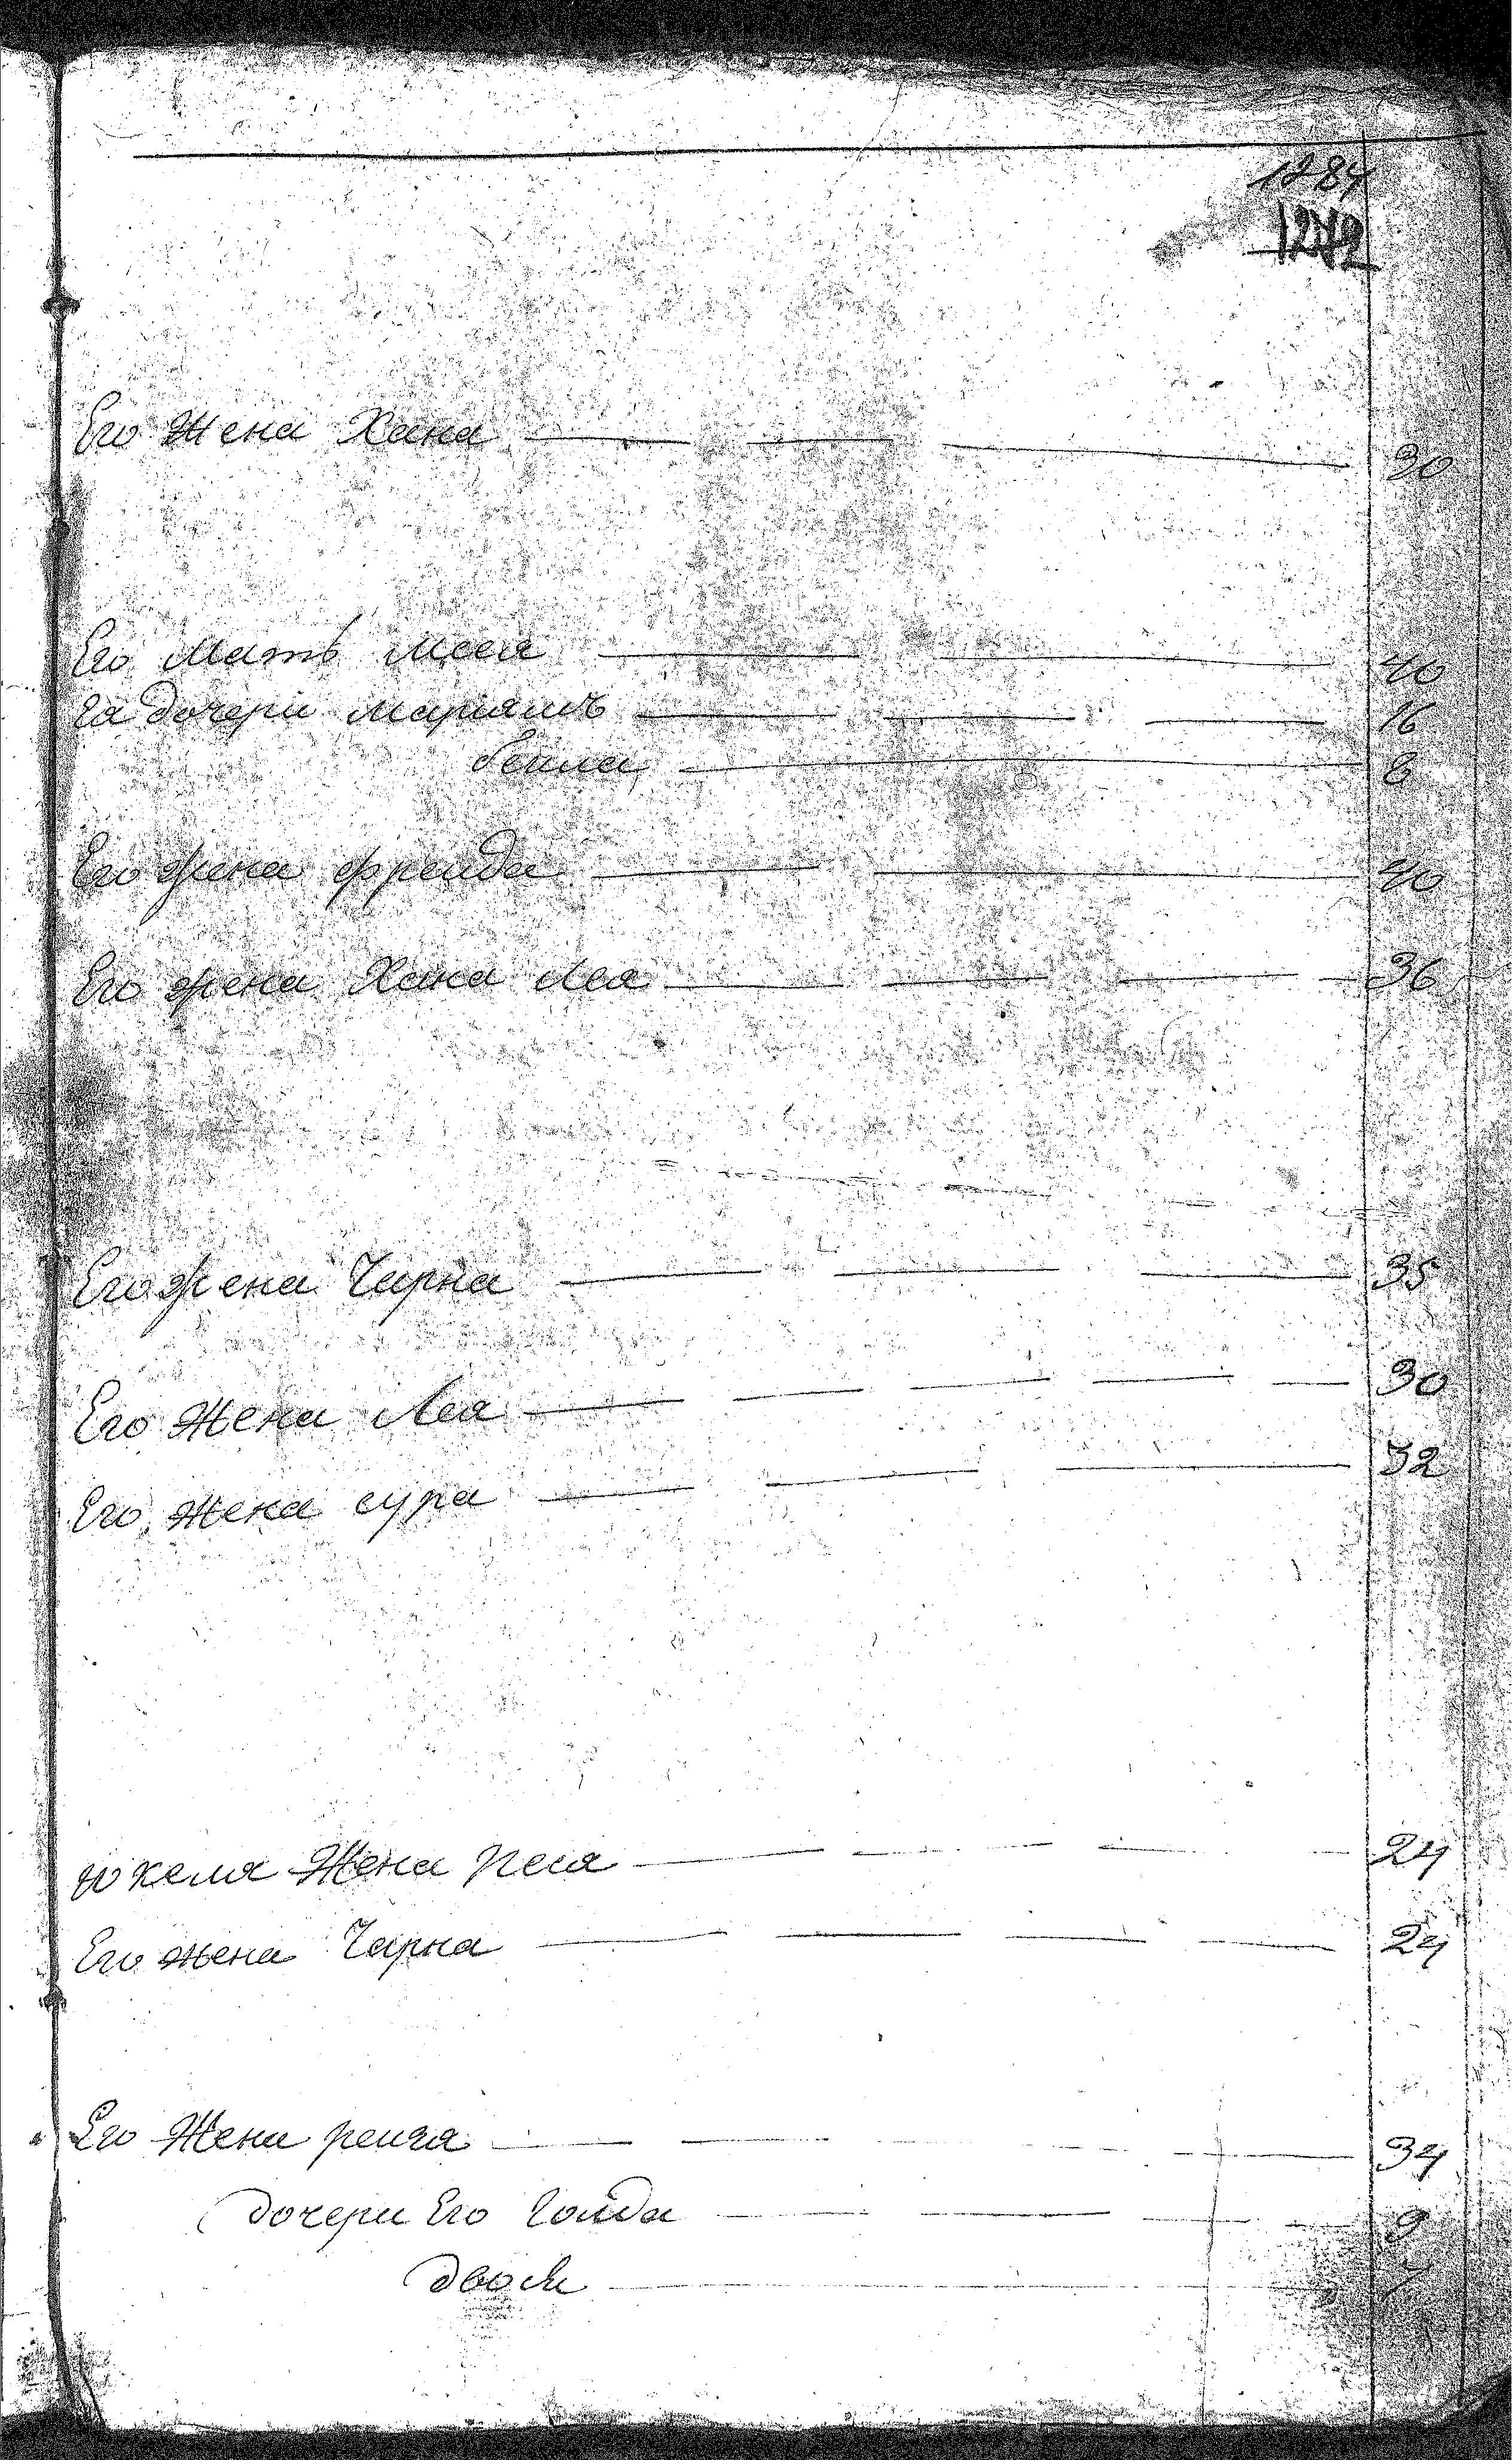 1284
1272
Его жена Хана — — — 30
Его мать — — 40
Ея дочери Маріямъ — — — 16
бейла — 8
Его жена фрейда — — 40
Его жена Хана Лея — — — 36
Его жена Чарна — — — 35
Его жена Лея — — — — — 30
Его жена сура — — — 32
жена Песя — — — — 24
Его жена Чарна — — — — 24
Его жена — — — — 34
дочери Его Голда — — — — 9
двося — 7